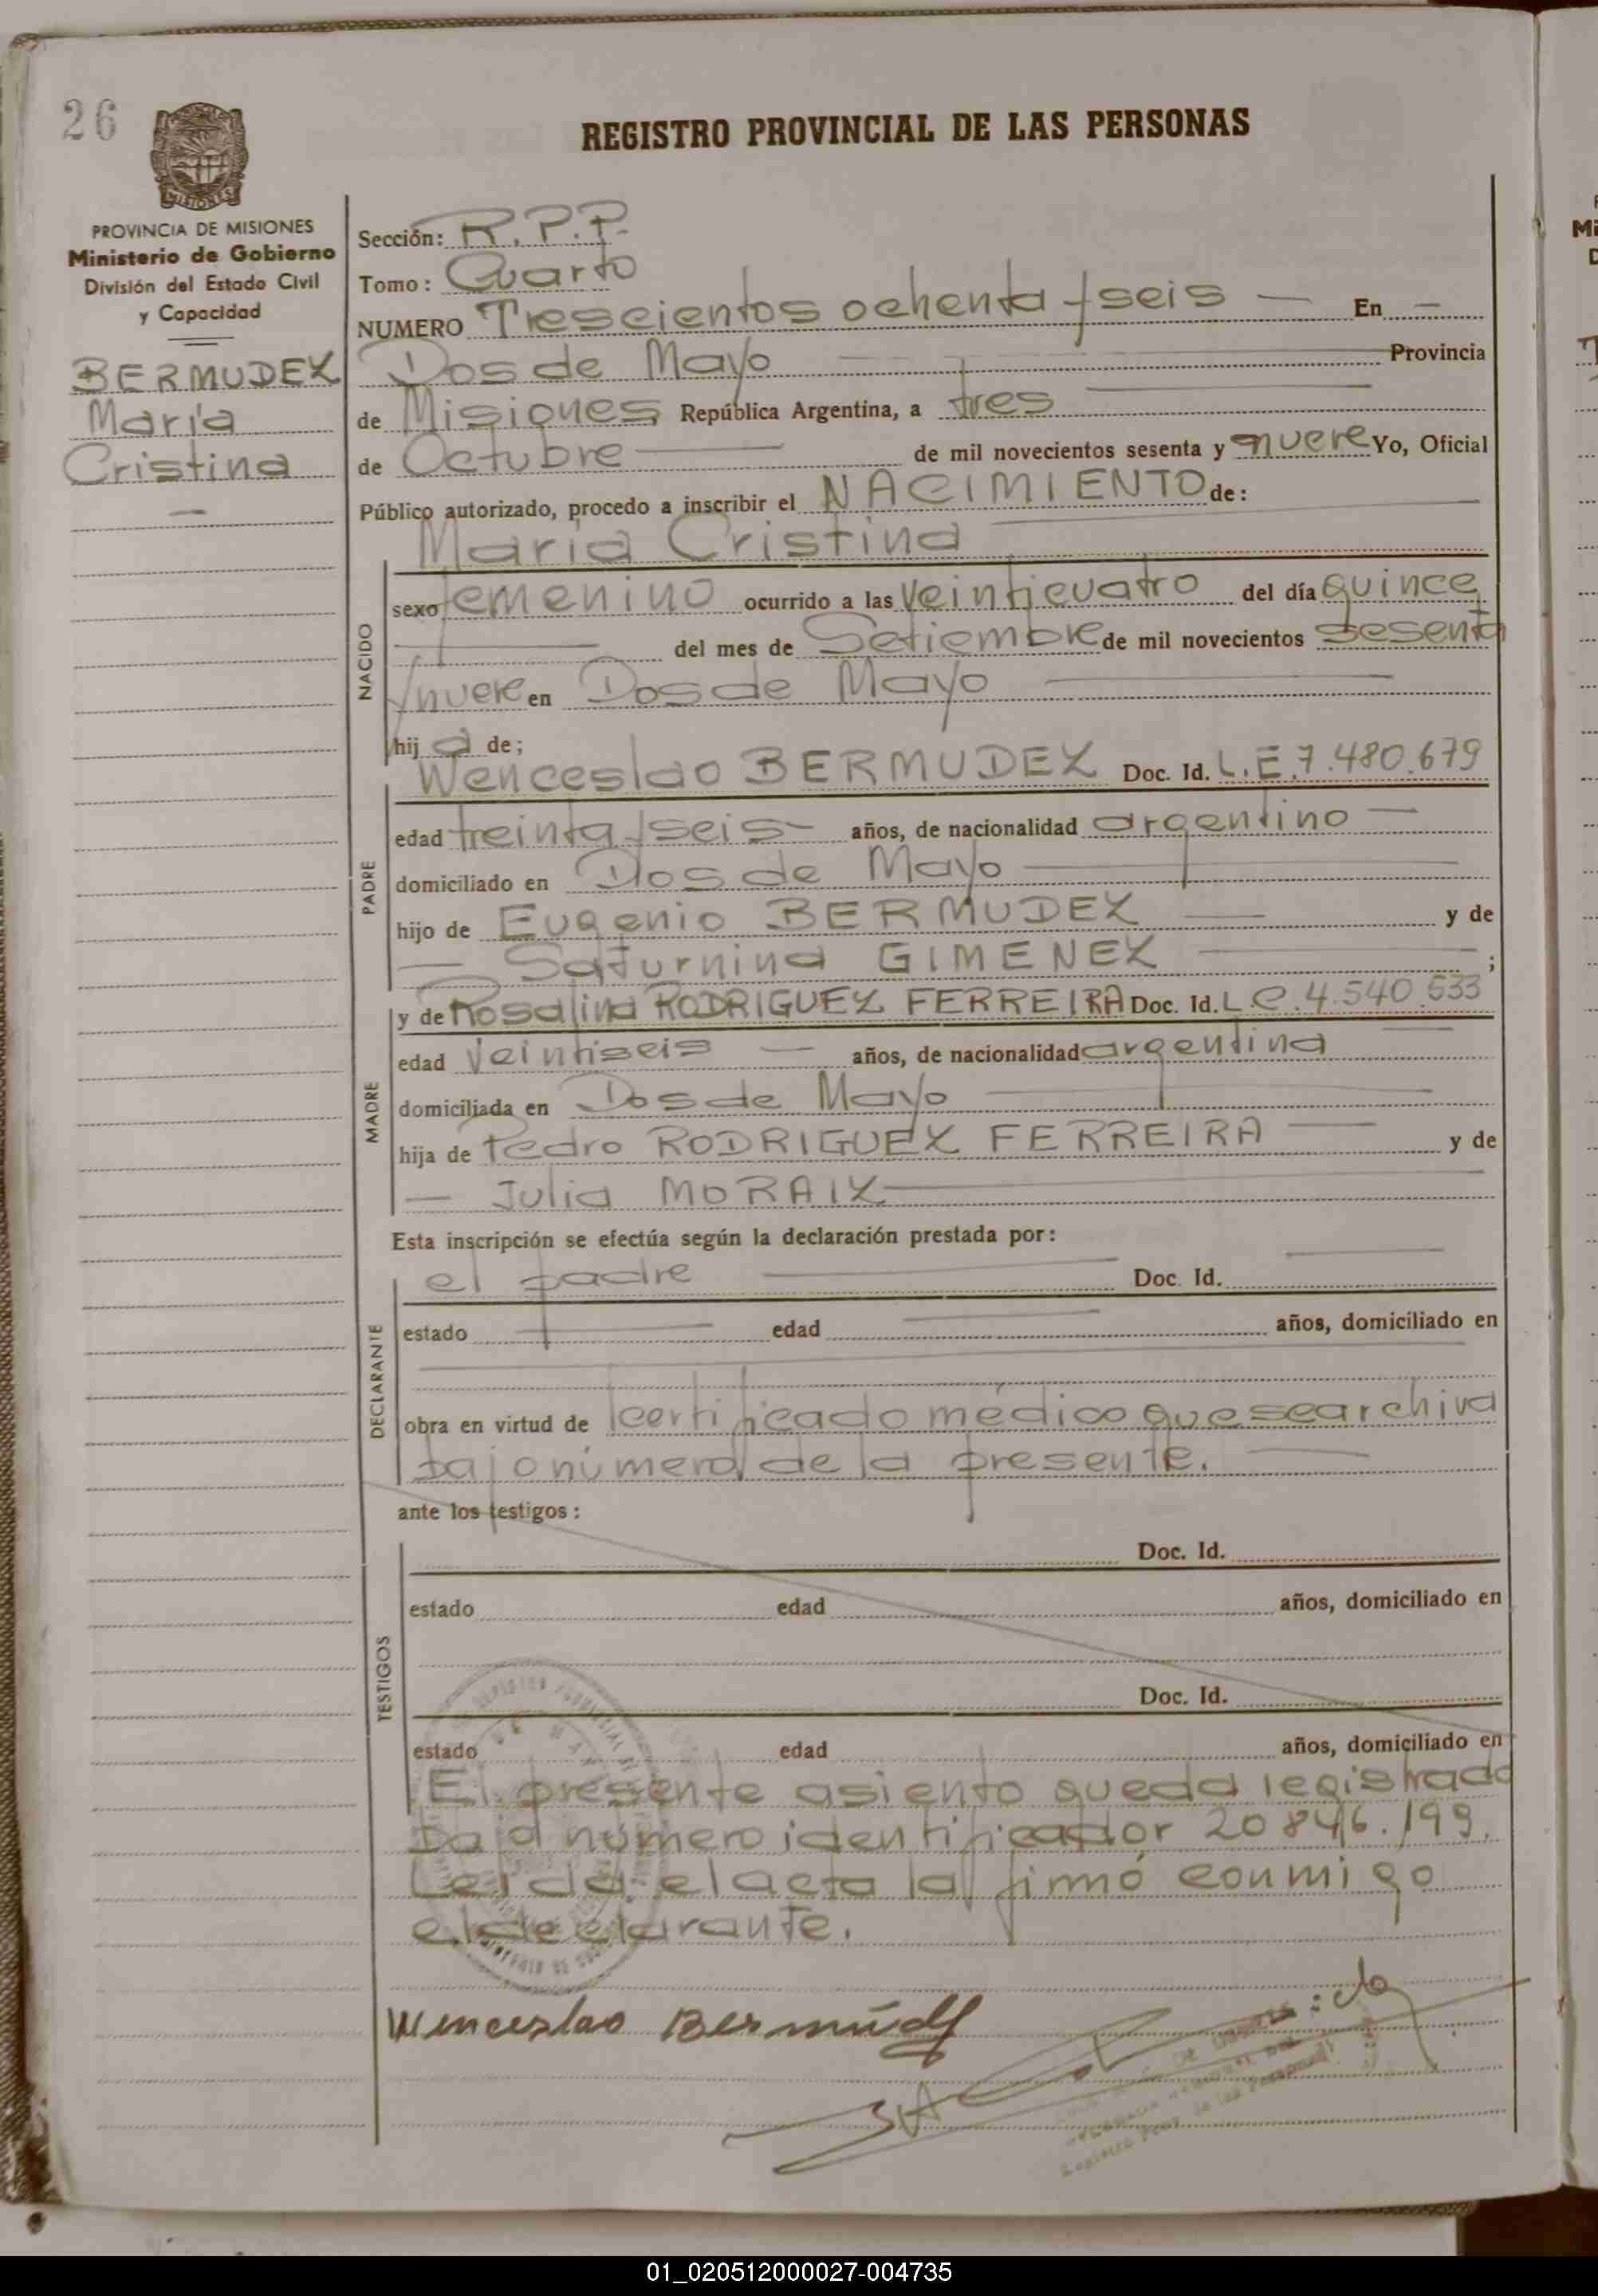 26
REGISTRO PROVINCIAL DE LAS PERSONAS
MISIONES
PROVINCIA DE MISIONES
Ministerio de Gobierno
División del Estado Civil
y Capacidad
BERMUDEZ
María
Cristina
Sección: R.P.P.
Tomo: Cuarto
NUMERO Trescientos ochenta y seis — En —
Dos de Mayo Provincia
de Misiones República Argentina, a tres
de Octubre de mil novecientos sesenta y nueve Yo, Oficial
Público autorizado, procedo a inscribir el NACIMIENTO de:
María Cristina
NACIDO
sexo femenino ocurrido a las veinticuatro del día quince
del mes de Setiembre de mil novecientos sesenta
y nueve en Dos de Mayo
hij a de;
PADRE
Wenceslao BERMUDEZ Doc. Id. L.E. 7.480.679
edad treinta y seis años, de nacionalidad argentino
domiciliado en Dos de Mayo
hijo de Eugenio BERMUDEZ y de
Saturnina GIMENEZ ;
MADRE
y de Rosalina RODRIGUEZ FERREIRA Doc. Id. L C. 4.540.533
edad veintiseis años, de nacionalidad argentina
domiciliada en Dos de Mayo
hija de Pedro RODRIGUEZ FERREIRA y de
Julia MORAIZ
Esta inscripción se efectúa según la declaración prestada por:
DECLARANTE
el padre Doc. Id.
estado edad años, domiciliado en
obra en virtud de certificado médico que se archiva
bajo número de la presente.
ante los testigos:
TESTIGOS
Doc. Id.
estado edad años, domiciliado en
Doc. Id.
estado edad años, domiciliado en
El presente asiento queda registrado
número identificador 20 846.199.
Leida el acta la firmó conmigo
el declarante.
Wenceslao Bermúdez
01_020512000027-004735